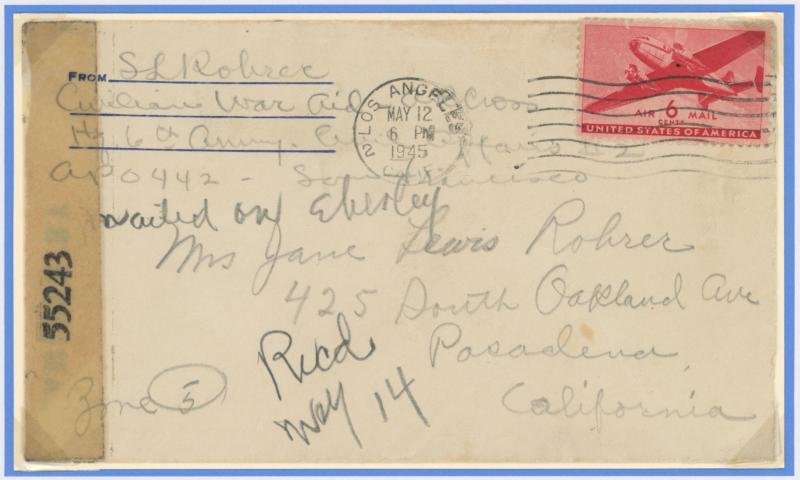 FROM S L Rohrer
Civilian War Aid Cross
Hq 6th Army - Civil Affairs
APO 442 - San Francisco
LOS ANGELES
MAY 12
6 PM
1945
CALIF.
AIR 6 MAIL
CENTS
UNITED STATES OF AMERICA
mailed by Eberley
Mrs Jane Lewis Rohrer
425 South Oakland Ave
Pasadena
California
Zone 5
Recd
May 14
55243